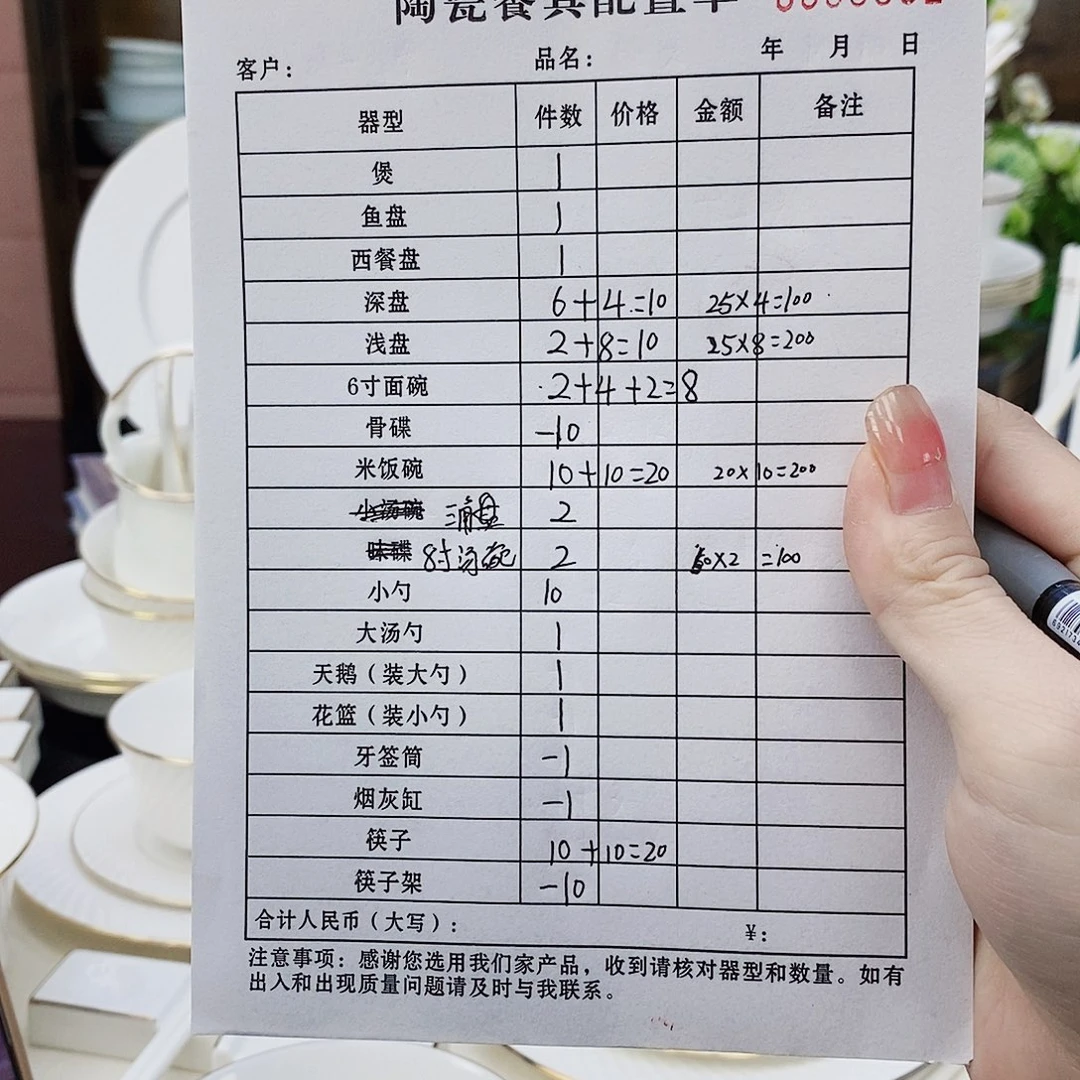 陶瓷餐具配置单
客户： 品名： 年 月 日
器型 件数 价格 金额 备注
煲 1
鱼盘 1
西餐盘 1
深盘 6+4=10 25×4=100
浅盘 2+8=10 25×8=200
6寸面碗 2+4+2=8
骨碟 -10
米饭碗 10+10=20 20×10=200
小汤碗 2
味碟 8寸汤碗 2 50×2 =100
小勺 10
大汤勺 1
天鹅（装大勺） 1
花篮（装小勺） 1
牙签筒 -1
烟灰缸 -1
筷子 10+10=20
筷子架 -10
合计人民币（大写）： ¥：
注意事项：感谢您选用我们家产品，收到请核对器型和数量。如有
出入和出现质量问题请及时与我联系。